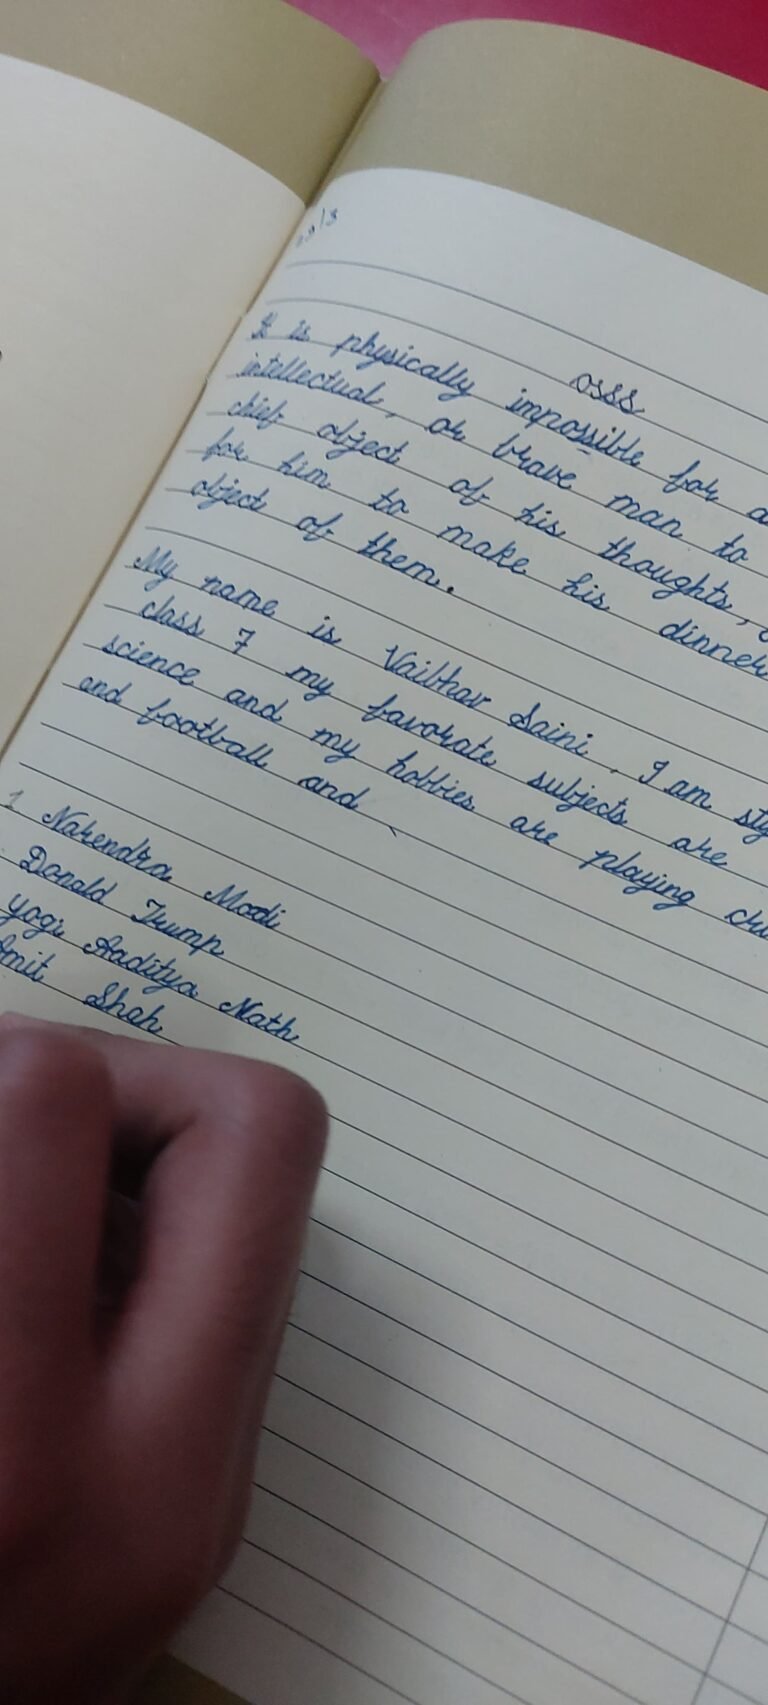 osss
It is physically impossible for a
intellectual, or brave man to
chief object of his thoughts,
for him to make his dinner
object of them.
My name is Vaibhav Saini. I am
class 7 my favorate subjects are
science and my hobbies are playing
and football and
1 Narendra Modi
Donald Trump
yogi Aaditya Nath
Amit Shah